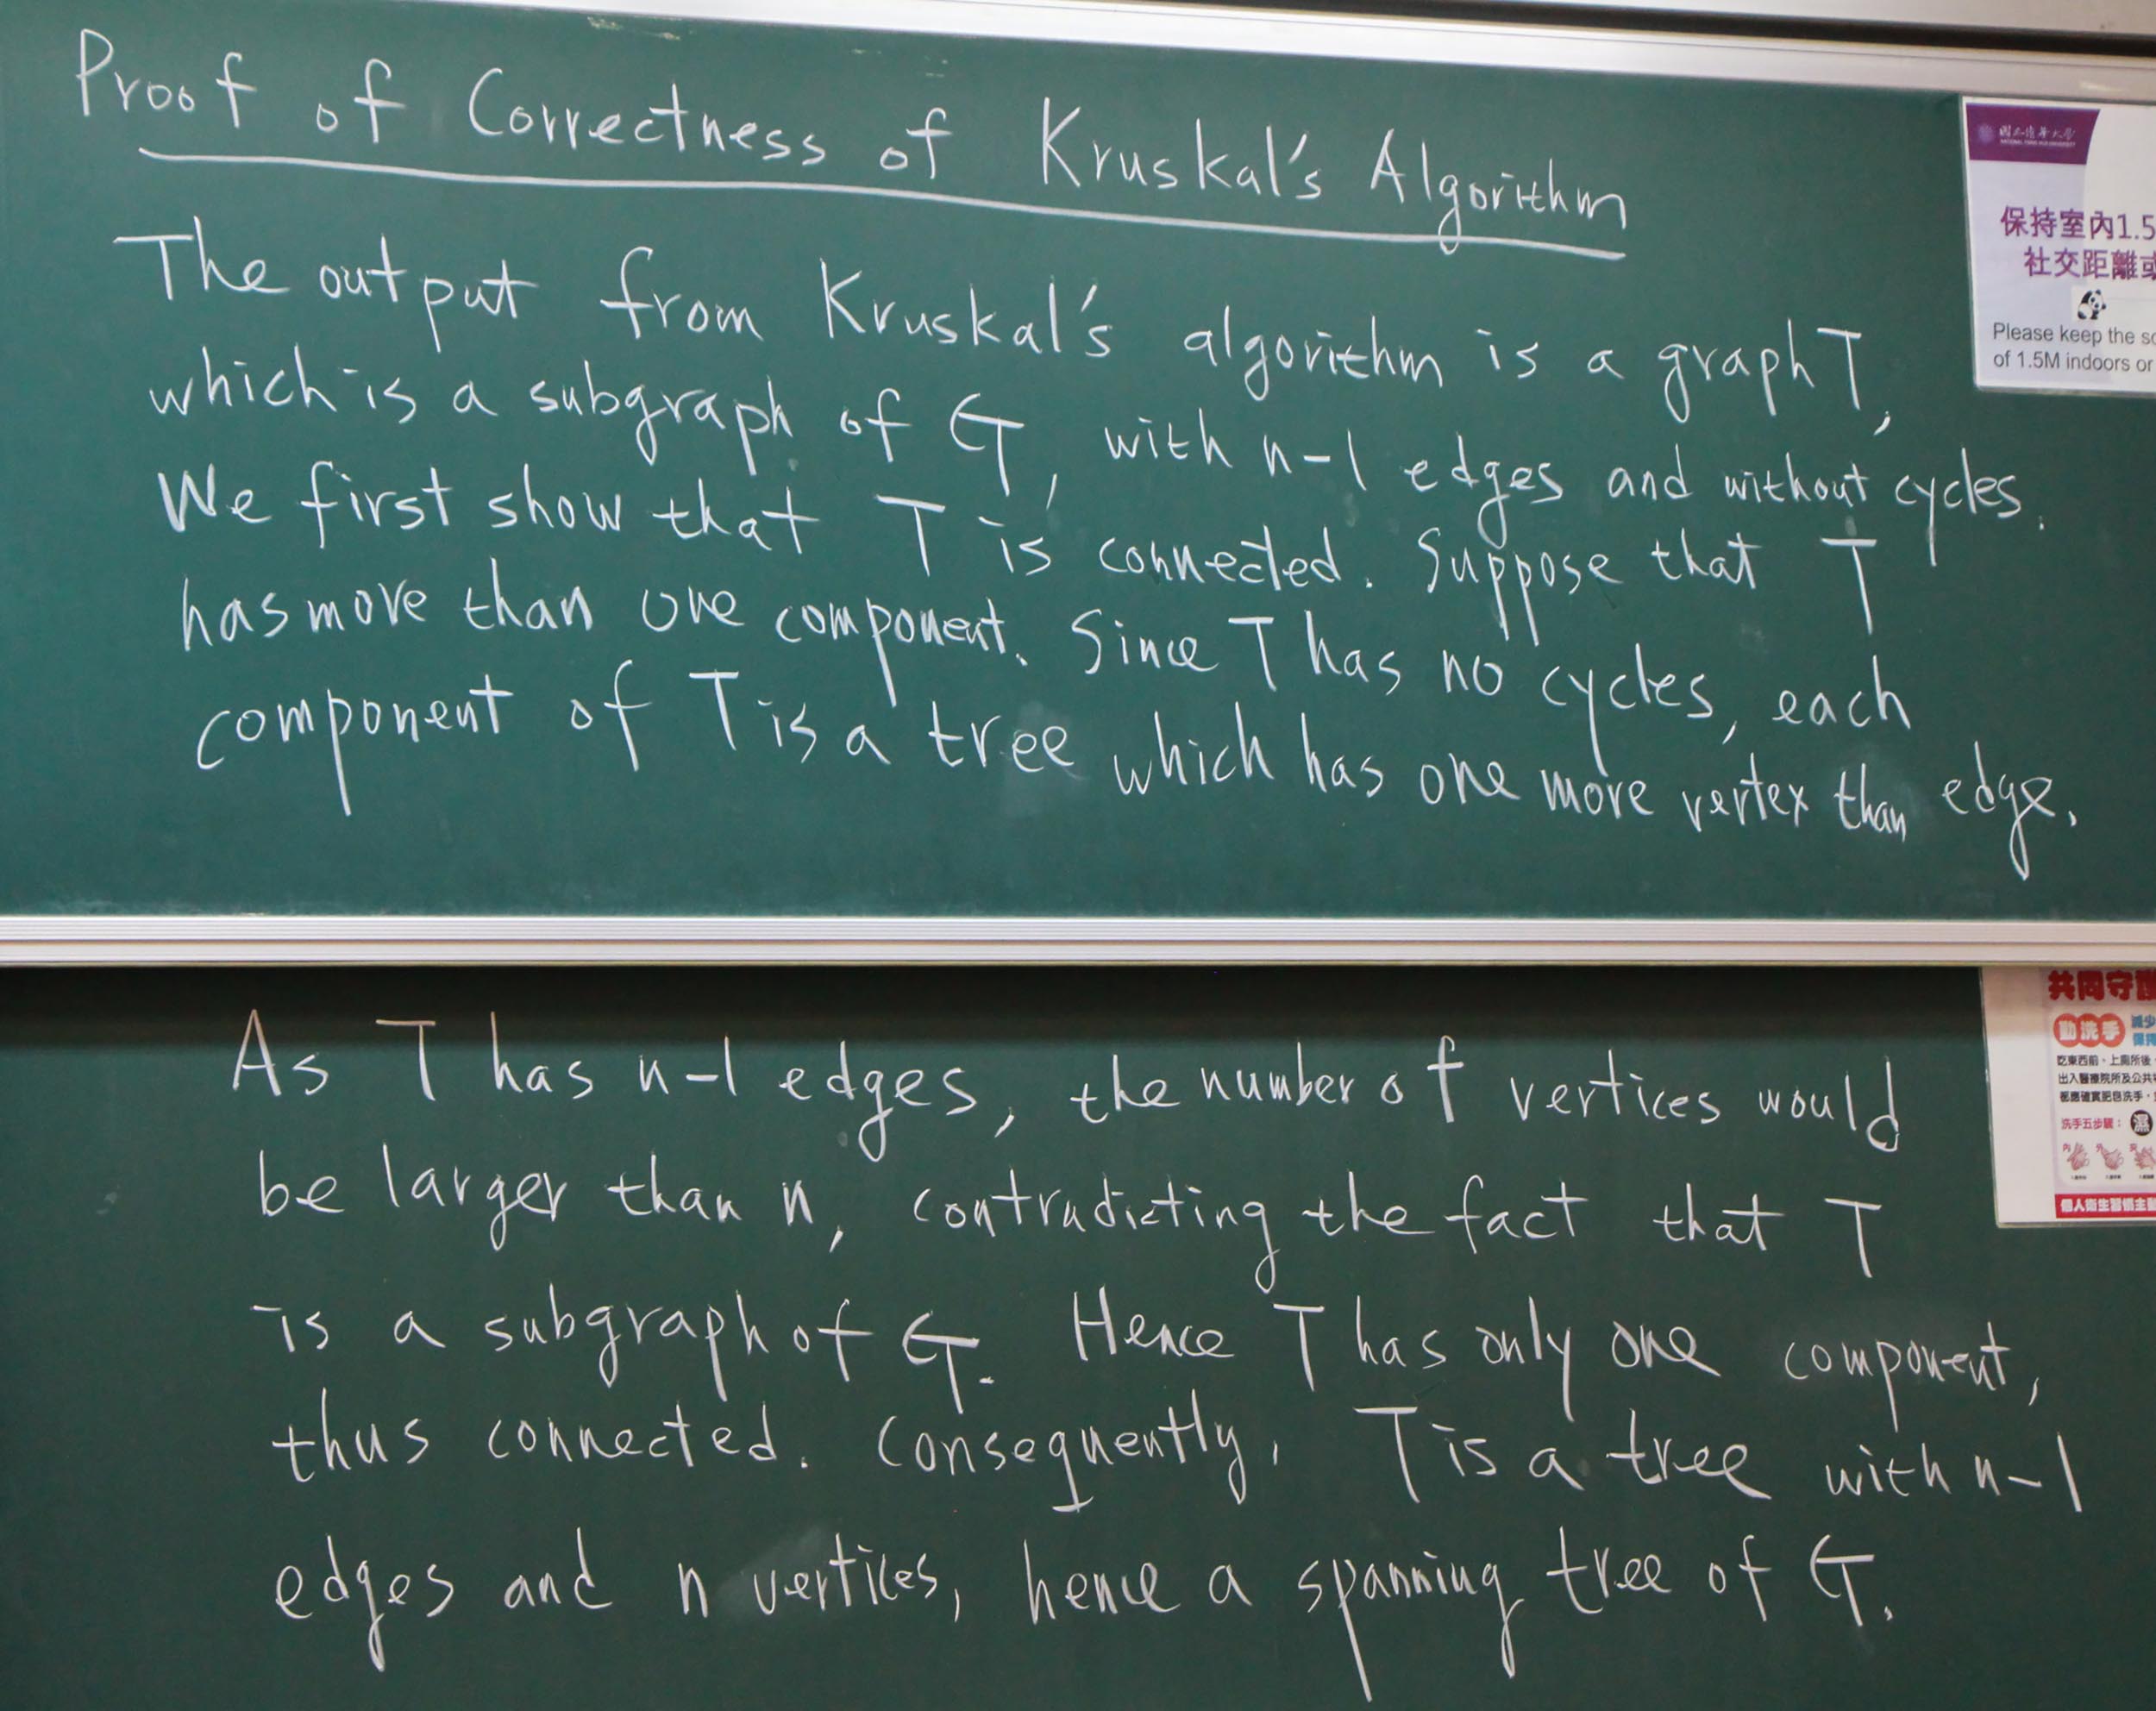 Proof of Correctness of Kruskal's Algorithm
The output from Kruskal's algorithm is a graph T,
which is a subgraph of G, with n-1 edges and without cycles.
We first show that T is connected. Suppose that T
has more than one component. Since T has no cycles, each
component of T is a tree which has one more vertex than edge.
國立清華大學
NATIONAL TSING HUA UNIVERSITY
保持室內1.5
社交距離或
Please keep the so
of 1.5M indoors or
As T has n-1 edges, the number of vertices would
be larger than n, contradicting the fact that T
is a subgraph of G. Hence T has only one component,
thus connected. Consequently, T is a tree with n-1
edges and n vertices, hence a spanning tree of G.
共同守護
勤洗手 減少
保持
吃東西前、上廁所後
出入醫療院所及公共
都應確實肥皂洗手
洗手五步驟： 濕
內 外 夾
個人衛生習慣主動